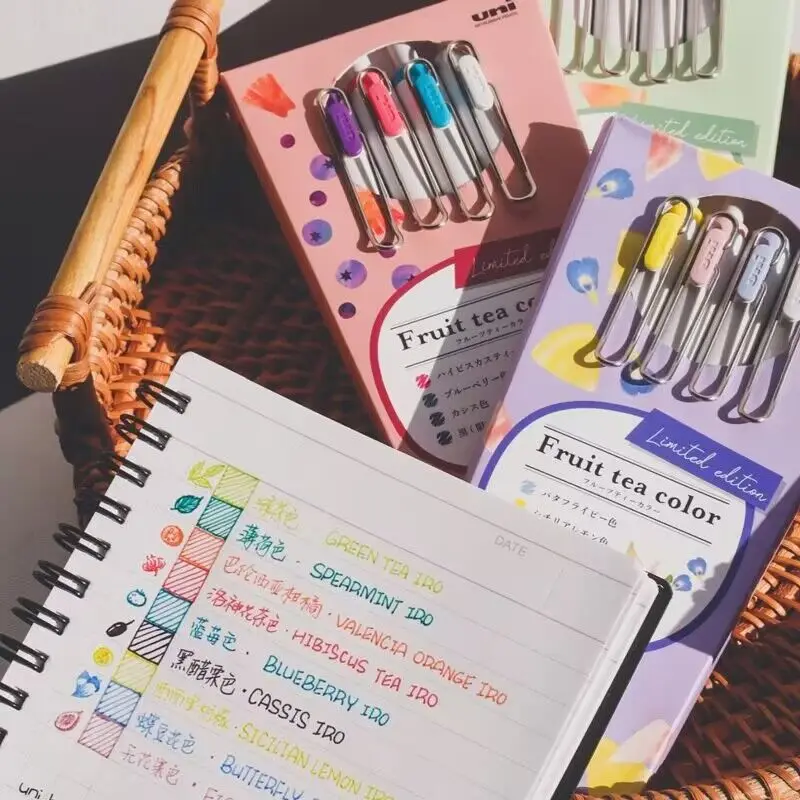 uni
MITSUBISHI PENCIL
Limited edition
Limited e
Fruit tea co
フルーツティーカラー
ハイビスカスティー
ブルーベリー色
カシス色
黒
Limited edition
Fruit tea color
フルーツティーカラー
バタフライピー色
シチリアレモン色
DATE
GREEN TEA IRO
薄荷色 · SPEARMINT IRO
巴伦西亚柑橘 · VALENCIA ORANGE IRO
洛神花茶色 · HIBISCUS TEA IRO
蓝莓色 BLUEBERRY IRO
黑醋栗色 · CASSIS IRO
SICICIAN LEMON IRO
蝶豆花色 · BUTTERFLY
无花果色 · FIG
uni